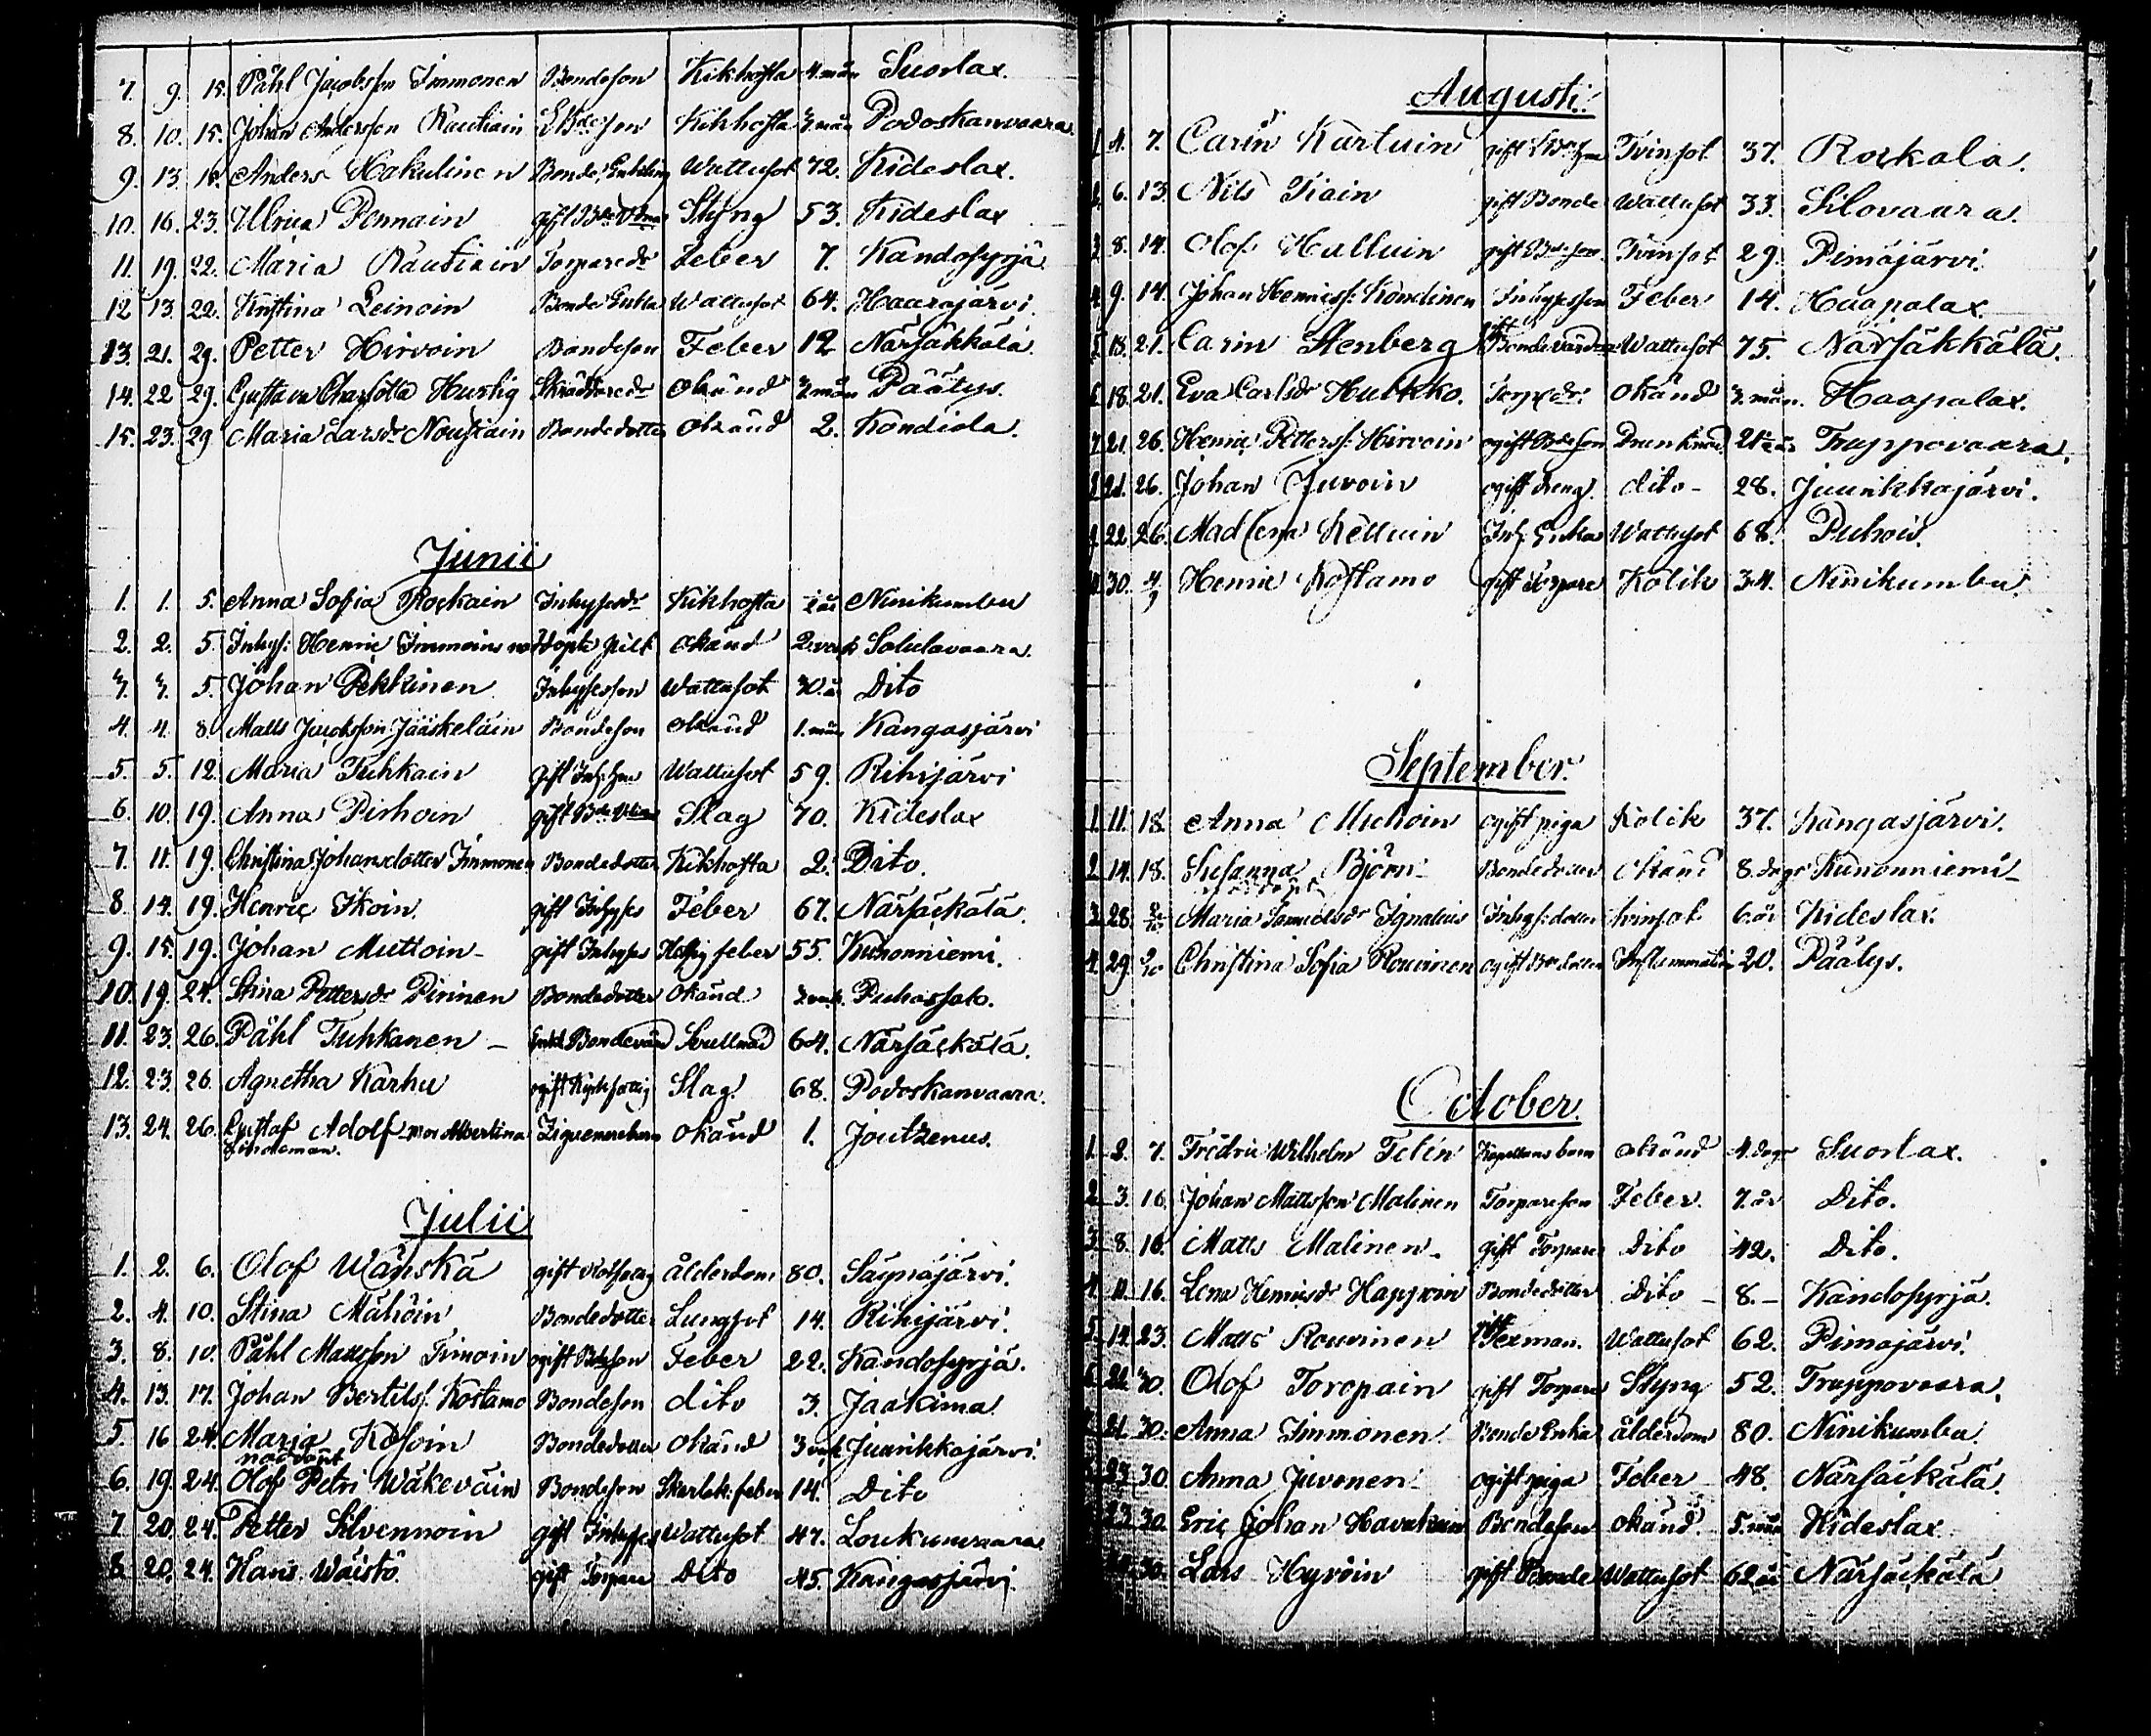 7. 9. 15. Påhl Jacobsson Immonen Bondeson Kikhosta 4. mån Suorlax.
8. 10. 15. Johan Andersson Rautiain Kikhosta 3. mån Podoskanvaara
9. 13. 18. Anders Hakulinen Bonde Enkling Wattusot 72. Kideslax.
10. 16. 23. Ulrica Pennain gift Styng 53. Kideslax
11. 19. 22. Maria Rautiain Torparedr Feber 7. Kandosyrjä
12 13. 22. Kristina Leinoin Bonde Enka Wattusot 64. Haarajärvi.
13. 21. 29. Petter Hirvoin Bondeson Feber 12 Närsäkkälä.
14. 22 29. Gustava Charlotta Hurtig Skräddaredr okänd 3. mån Päätys.
15. 23. 29 Maria Larsdr Noussiain Bondedotter okänd 2. Kondiola.
Junii
1. 1. 5. Anna Sofia Roskain Inhysesdr Kikhosta Ninikumbu
2. 2. 5. Inhys: Henric Immoins okänd 2. veck Salulavaara.
3. 3. 5. Johan Pekkinen Inhysesson Wattusot 30. år Dito
4. 4. 8. Matts Jacobsson Jääskeläin Bondeson okänd 1. mån Kangasjärvi
5. 5. 12. Maria Tuhkain gift Wattusot 59. Rihijärvi
6. 10. 19. Anna Pirhoin gift Slag 70. Kideslax
7. 11. 19. Christina Johansdotter Immonen Bondedotter Kikhosta 2. Dito.
8. 14. 19. Henric Ikoin gift Inhyses Feber 67. Närsäckälä.
9. 15. 19. Johan Muttoin gift Inhyses Hetsig feber 55. Kunonniemi.
10. 19. 24. Stina Pettersdr Pirinen Bondedotter okänd 3 veck. Puhossalo.
11. 23. 26. Påhl Tuhkanen Enkl Bondevärd Svullnad 64. Närsäckälä.
12. 23. 26. Agnetha Karhu ogift Kyrkfattig Slag 68. Podoskanvaara.
13. 24. 26. Gustaf Adolf mor Albertina Ziguenerebarn okänd 1. Joutzenus.
Lindeman.
Julii
1. 2. 6. Olof Wänskä gift Rotfattig ålderdom 80. Säynäjärvi.
2. 4. 10. Stina Mähöin Bondedotter Lungsot 14. Rihijärvi.
3. 8. 10. Påhl Mattsson Timoin ogift Feber 22. Kandosyrjä.
4. 13. 17. Johan Bertilss. Kostamo Bondeson dito 3. Jaakima.
5. 16 24. Maria Kosoin Bondedotter okänd 3 veck Juurikkajärvi.
nöddöpt
6. 19. 24. Olof Petri Wäkeväin Bondeson Skarlak. feber 14. Dito
7 20. 24. Petter Silvennoin gift Inhyses Wattusot 47. Loukunvaara
8. 20. 24. Hans Wäistö. gift Torpare Dito 45. Kangasjärvi.
Augusti.
1. 4. 7. Carin Kartuin gift Tvinsot 37. Roskala.
2. 6. 13. Nils Tiain gift Bonde Wattusot 33. Silovaara.
3. 8. 14. Olof Halluin gift Tvinsot 29. Pimäjärvi.
4. 9. 14. Johan Henricss: Kondinen Inhysesson Feber 14. Haapalax.
5. 18. 21. Carin Stenberg gift Wattusot 75. Närsäkkälä.
6. 18. 21. Eva Carlsdr Hukko. okänd 3. mån. Haapalax.
7. 21. 26. Henric Petterss: Hirvoin ogift Drunknad 21 Truppovaara.
8. 21. 26. Johan Juvoin ogift dreng dito 28. Juurikkajärvi.
9. 22. 26. Madlena Kelluin Inh: Enka Wattusot 68. Puhois.
10. 30. Henric Kostamo gift Torpare Kolik 34. Ninikumbu
September.
1. 11. 18. Anna Muhoin ogift piga Kolik 37. Kangasjärvi.
2. 14. 18. Susanna Björn Bondedotter okänd 8. dagr Kunonniemi
nöddöpt
3. 28. Maria Samuelsdr Ignatius Inhys: dotter tvinsot 6. år Kideslax.
4. 29. Christina Sofia Rouvinen ogift Inflammation 20. Päätys.
October.
1. 2. 7. Fredric Wilhelm Telén Kapellans barn okänd 4. dagr Suorlax.
2. 3. 16. Johan Mattsson Malinen Torpareson Feber. 7. år Dito.
3. 8. 16. Matts Malinen gift Torpare Dito 42. Dito.
4. 16. Lena Henricsdr Happoin Bondedotter Dito 8. Kandosyrjä.
5. 14. 23. Matts Rouvinen gift Wattusot 62. Pimäjärvi.
6. 30. Olof Toropain gift Torpare Styng 52. Truppovaara.
21. 30. Anna Immonen Bonde Enka ålderdom 80. Ninikumbu.
23 30. Anna Juvonen ogift piga Feber 48. Närsäckälä.
23 30. Eric Johan Havukain Bondeson okänd. 5. mån Kideslax
30. Lars Hyvöin gift Bonde Wattusot 62. år Närsäckälä